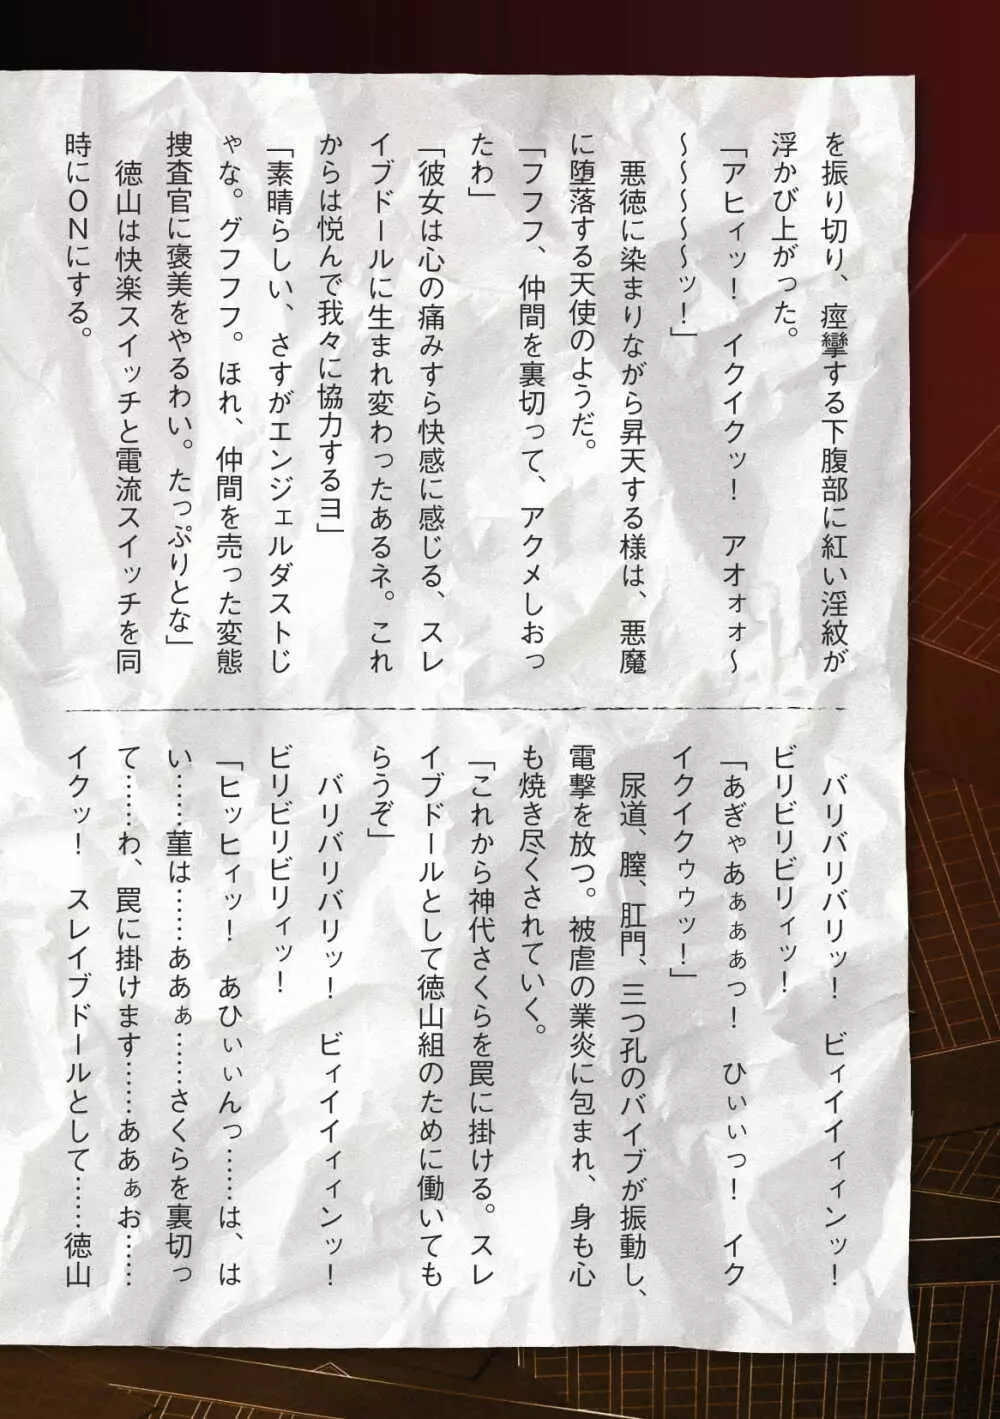 を振り切り、痙攣する下腹部に紅い淫紋が
浮かび上がった。
「アヒィッ！　イクイクッ！　アオォォ〜
〜〜〜〜〜ッ！」
悪徳に染まりながら昇天する様は、悪魔
に堕落する天使のようだ。
「フフフ、仲間を裏切って、アクメしおっ
たわ」
「彼女は心の痛みすら快感に感じる、スレ
イブドールに生まれ変わったあるネ。これ
からは悦んで我々に協力するヨ」
「素晴らしい、さすがエンジェルダストじ
ゃな。グフフフ。ほれ、仲間を売った変態
捜査官に褒美をやるわい。たっぷりとな」
徳山は快楽スイッチと電流スイッチを同
時にＯＮにする。
バリバリバリッ！　ビィイイィィンッ！
ビリビリビリィッ！
「あぎゃあぁぁぁっ！　ひぃぃっ！　イク
イクイクゥゥッ！」
尿道、膣、肛門、三つ孔のバイブが振動し、
電撃を放つ。被虐の業炎に包まれ、身も心
も焼き尽くされていく。
「これから神代さくらを罠に掛ける。スレ
イブドールとして徳山組のために働いても
らうぞ」
バリバリバリッ！　ビィイイィィンッ！
ビリビリビリィッ！
「ヒッヒィッ！　あひぃぃんっ……は、は
い……菫は……ああぁ……さくらを裏切っ
て……わ、罠に掛けます……ああぁお……
イクッ！　スレイブドールとして……徳山